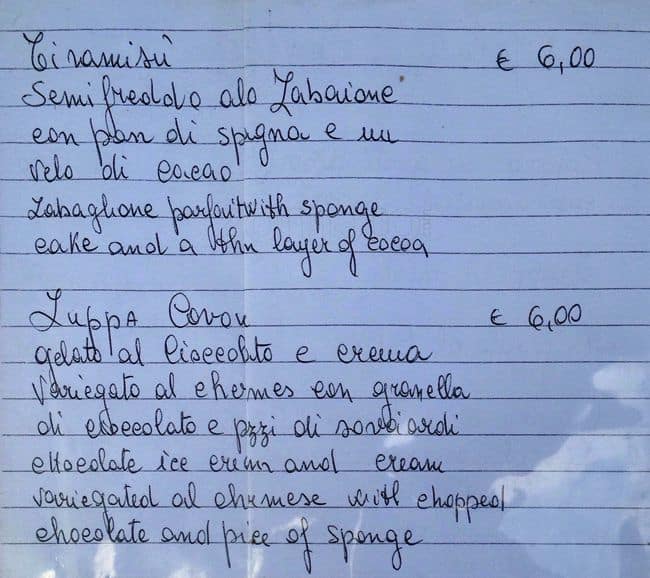 Tiramisù € 6,00
Semifreddo alo Zabaione
con pan di spigna e un
velo di cacao
Zabaglione parfait with sponge
cake and a thn layer of cocoa
Zuppa Covou € 6,00
gelato al Cioccolato e crema
variegato al chermes con granella
di cioccolato e pzzi di savoiardi
chocolate ice crium and cream
variegated al chermese with chopped
chocolate and piece of sponge